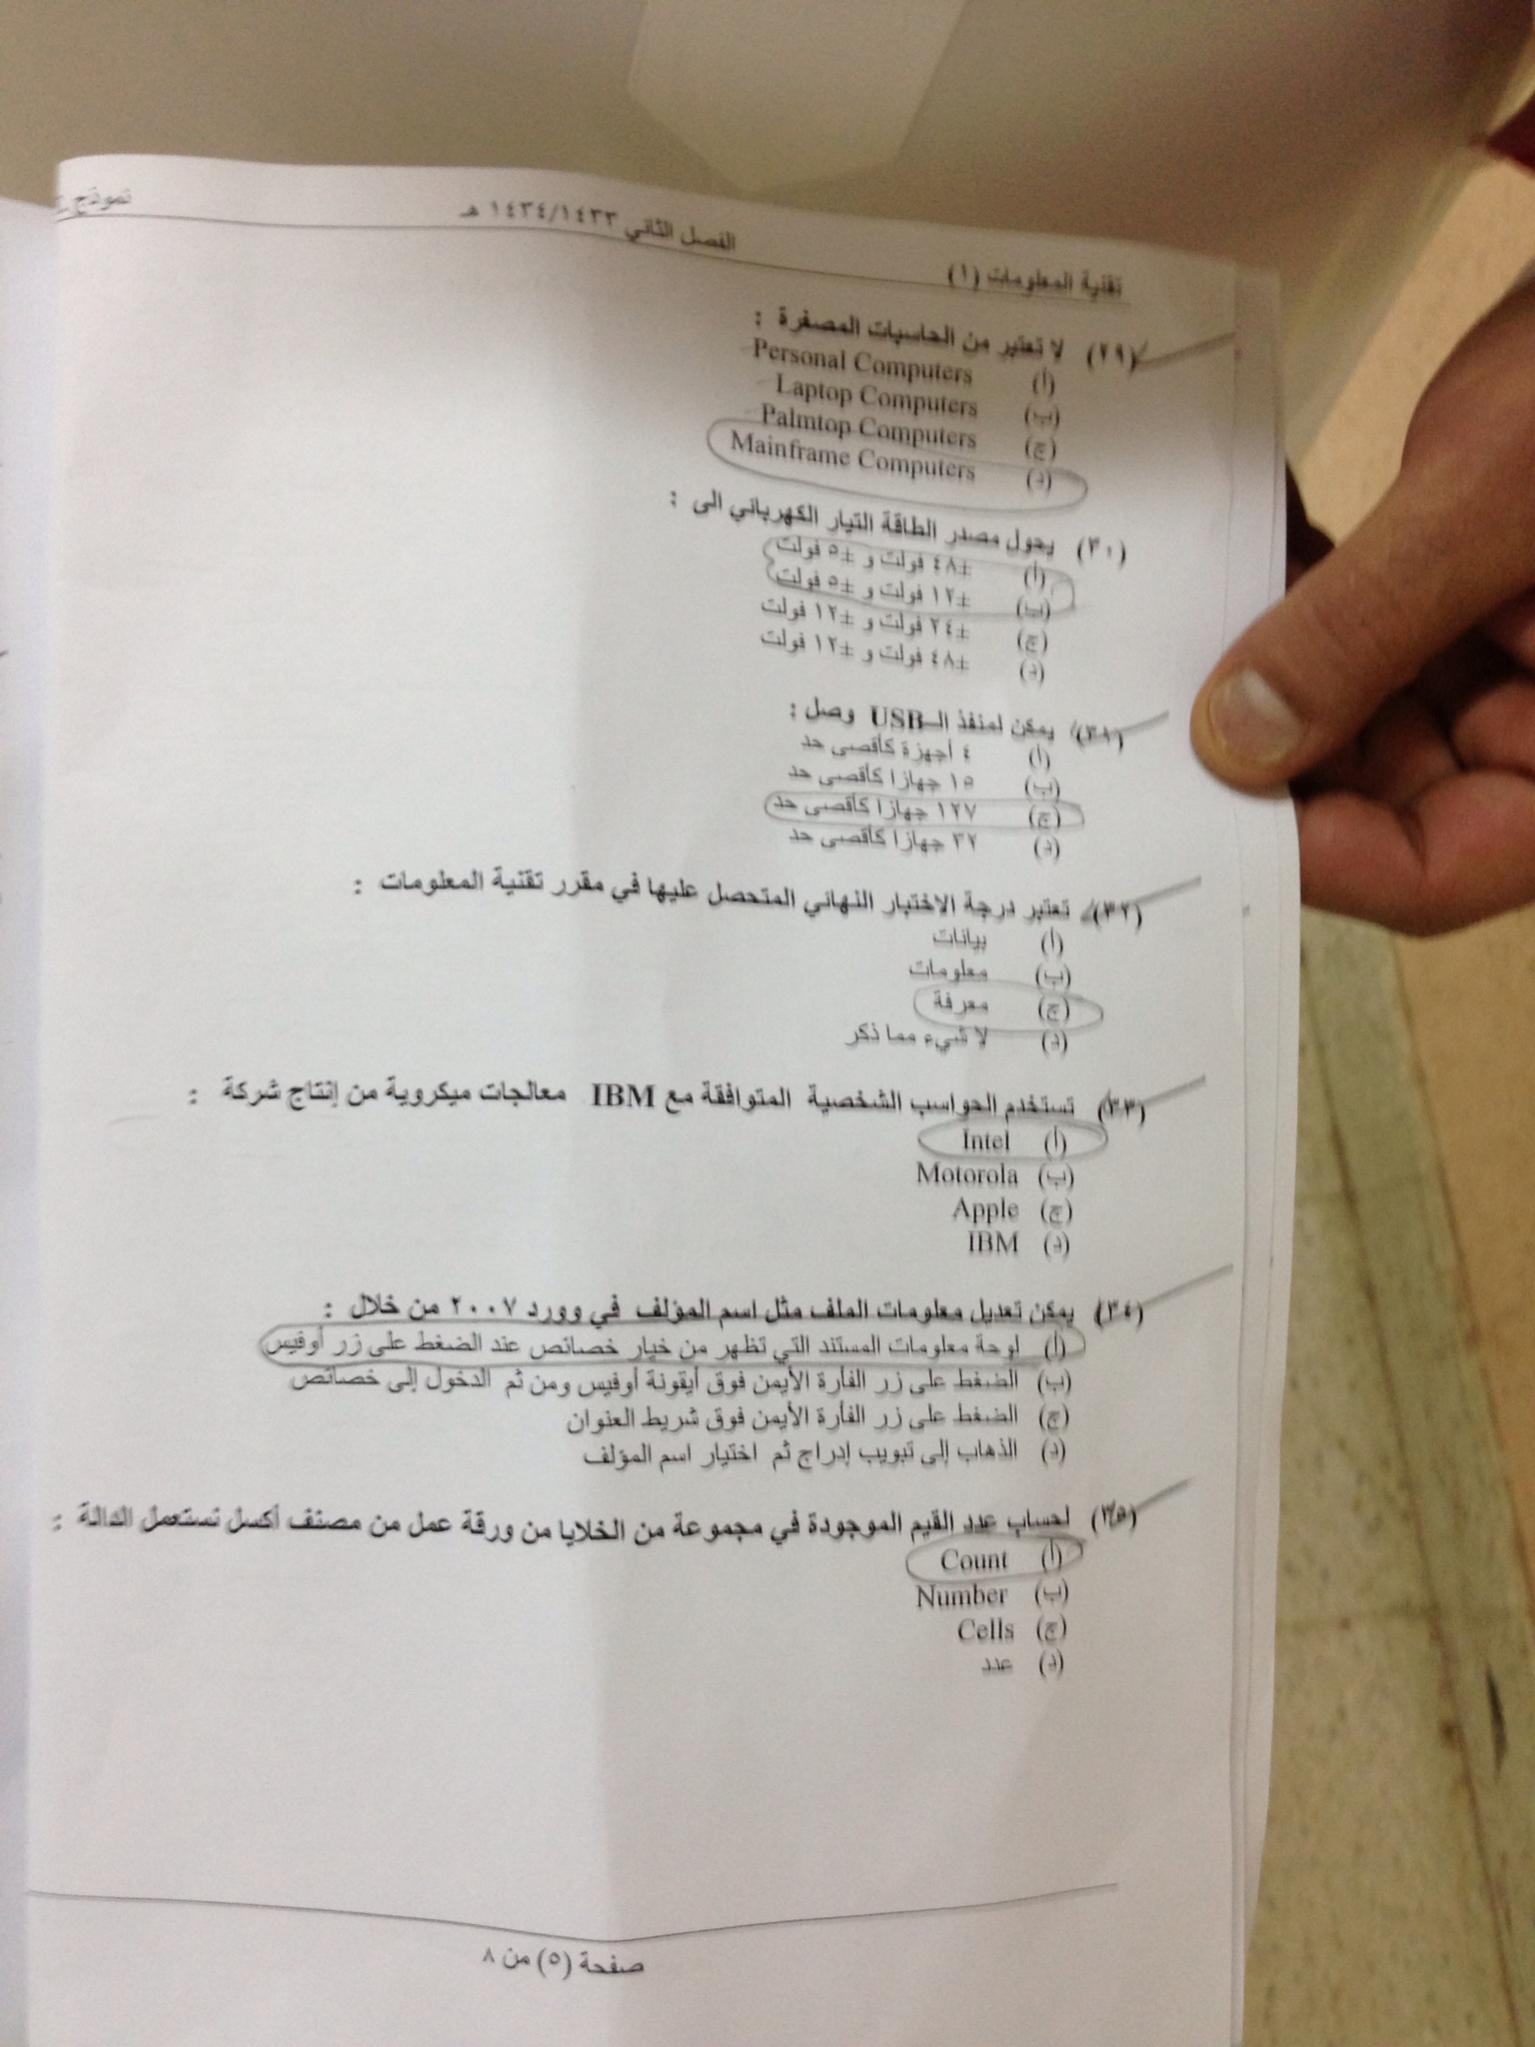 تقنية المعلومات (١) الفصل الثاني ١٤٣٤/١٤٣٣ هـ نموذج
(٢٩) لا تعتبر من الحاسبات المصغرة :
(أ) Personal Computers
(ب) Laptop Computers
(ج) Palmtop Computers
(د) Mainframe Computers
(٣٠) يحول مصدر الطاقة التيار الكهربائي الى :
(أ) ±٤٨ فولت و ±٥ فولت
(ب) ±١٢ فولت و ±٥ فولت
(ج) ±٢٤ فولت و ±١٢ فولت
(د) ±٤٨ فولت و ±١٢ فولت
(٣١) يمكن لمنفذ الـ USB وصل :
(أ) ٤ أجهزة كأقصى حد
(ب) ١٥ جهازا كأقصى حد
(ج) ١٢٧ جهازا كأقصى حد
(د) ٣٢ جهازا كأقصى حد
(٣٢) تعتبر درجة الاختبار النهائي المتحصل عليها في مقرر تقنية المعلومات :
(أ) بيانات
(ب) معلومات
(ج) معرفة
(د) لا شيء مما ذكر
(٣٣) تستخدم الحواسب الشخصية المتوافقة مع IBM معالجات ميكروية من إنتاج شركة :
(أ) Intel
(ب) Motorola
(ج) Apple
(د) IBM
(٣٤) يمكن تعديل معلومات الملف مثل اسم المؤلف في وورد ٢٠٠٧ من خلال :
(أ) لوحة معلومات المستند التي تظهر من خيار خصائص عند الضغط على زر أوفيس
(ب) الضغط على زر الفأرة الأيمن فوق أيقونة أوفيس ومن ثم الدخول إلى خصائص
(ج) الضغط على زر الفأرة الأيمن فوق شريط العنوان
(د) الذهاب إلى تبويب إدراج ثم اختيار اسم المؤلف
(٣٥) لحساب عدد القيم الموجودة في مجموعة من الخلايا من ورقة عمل من مصنف أكسل نستعمل الدالة :
(أ) Count
(ب) Number
(ج) Cells
(د) عدد
صفحة (٥) من ٨